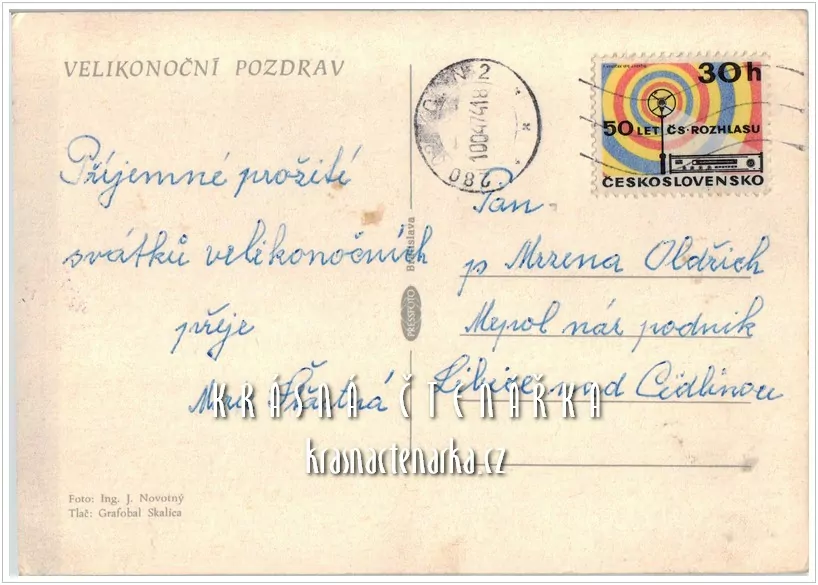 VELIKONOČNÍ POZDRAV
Příjemné prožití
svátků velikonočních
přeje
Šťastná
30h
50 LET ČS·ROZHLASU
ČESKOSLOVENSKO
2
10047418
Pan
p Mrzena Oldřich
Mepol nár podnik
Libice nad Cidlinou
PRESSFOTO Bratislava
KRÁSNÁ ČTENÁŘKA
krasnactenarka.cz
Foto: Ing. J. Novotný
Tlač: Grafobal Skalica